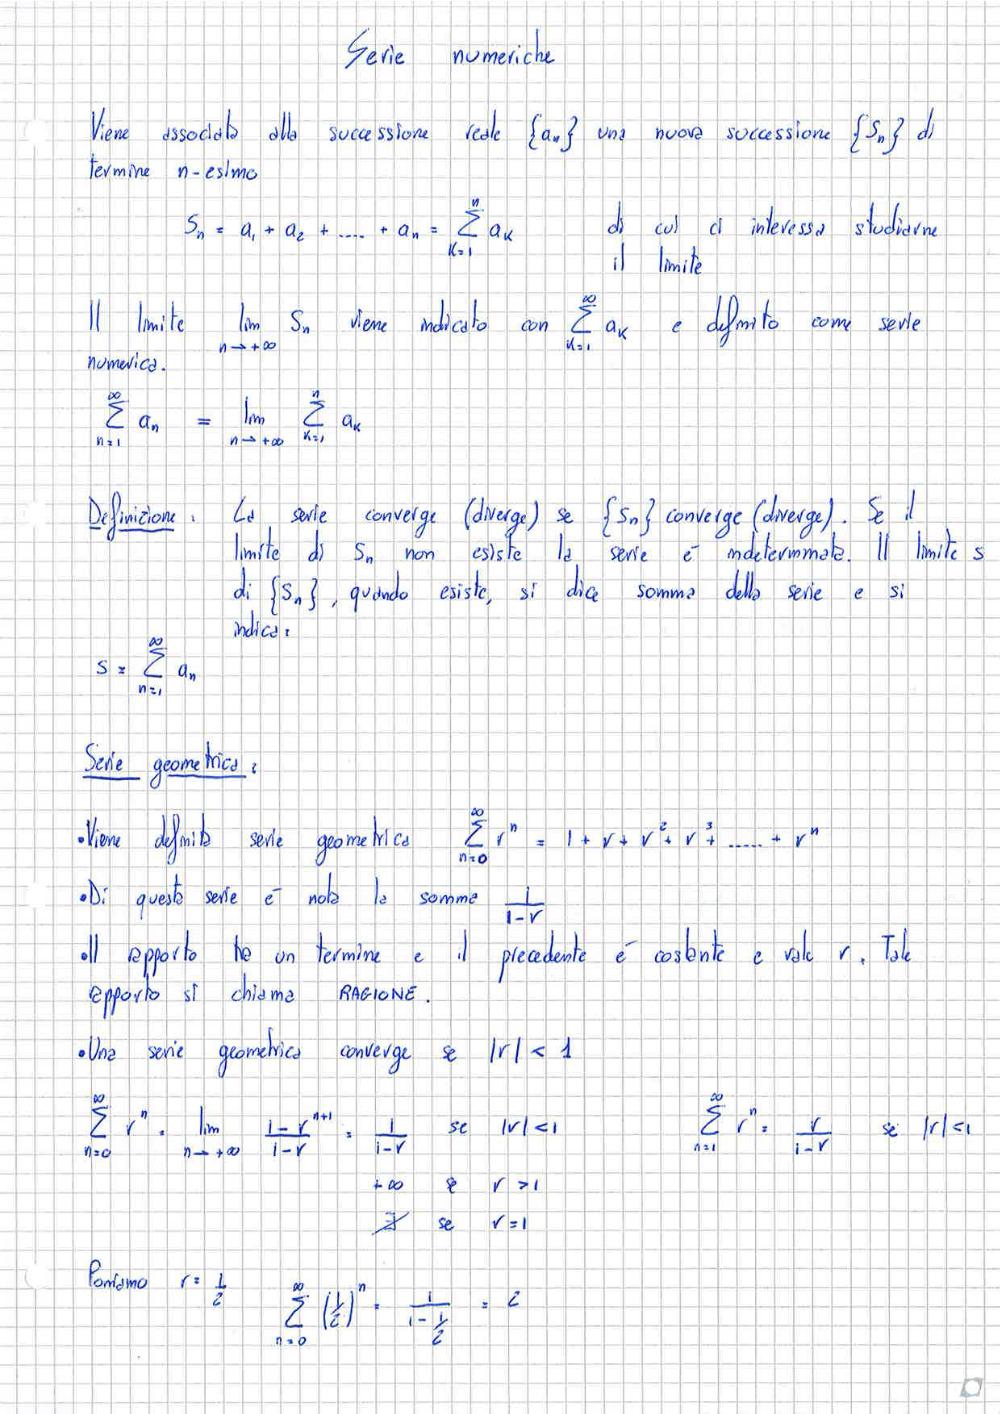 Serie numeriche
Viene associata alla successione reale {aₙ} una nuova successione {Sₙ} di
termine n-esimo
Sₙ = a₁ + a₂ + ..... + aₙ = ∑_{K=1}^{n} a_K di cui ci interessa studiarne
il limite
Il limite lim_{n→+∞} Sₙ viene indicato con ∑_{K=1}^{∞} a_K e definito come serie
numerica.
∑_{n=1}^{∞} aₙ = lim_{n→+∞} ∑_{K=1}^{n} a_K
Definizione: La serie converge (diverge) se {Sₙ} converge (diverge). Se il
limite di Sₙ non esiste la serie è indeterminata. Il limite s
di {Sₙ}, quando esiste, si dice somma della serie e si
indica:
S = ∑_{n=1}^{∞} aₙ
Serie geometrica:
•Viene definita serie geometrica ∑_{n=0}^{∞} rⁿ = 1 + r + r² + r³ + ..... + rⁿ
•Di questa serie è nota la somma 1/(1-r)
•Il rapporto tra un termine e il precedente é costante e vale r. Tale
rapporto si chiama RAGIONE.
•Una serie geometrica converge se |r| < 1
∑_{n=0}^{∞} rⁿ = lim_{n→+∞} (1-r^{n+1})/(1-r) = 1/(1-r) se |r|<1 ∑_{n=1}^{∞} rⁿ = r/(1-r) se |r|<1
+∞ se r >1
∄ se r=1
Poniamo r = 1/2 ∑_{n=0}^{∞} (1/2)ⁿ = 1/(1-1/2) = 2